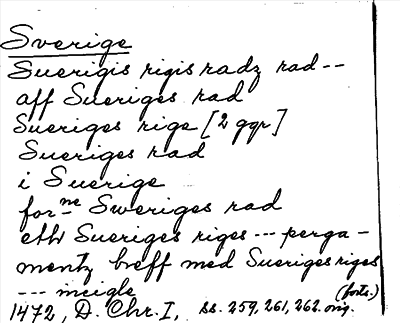 Sverige
Suerigis rigis radz rad --
aff Sueriges rad
Sueriges rige [2 ggr]
Sueriges rad
i Suerige
for-ne Sweriges rad
eth Sueriges riges --- perga-
mentz breff med Sueriges riges
--- incigle (forts.)
1472, D. Chr. I, ss. 259, 261, 262. orig.